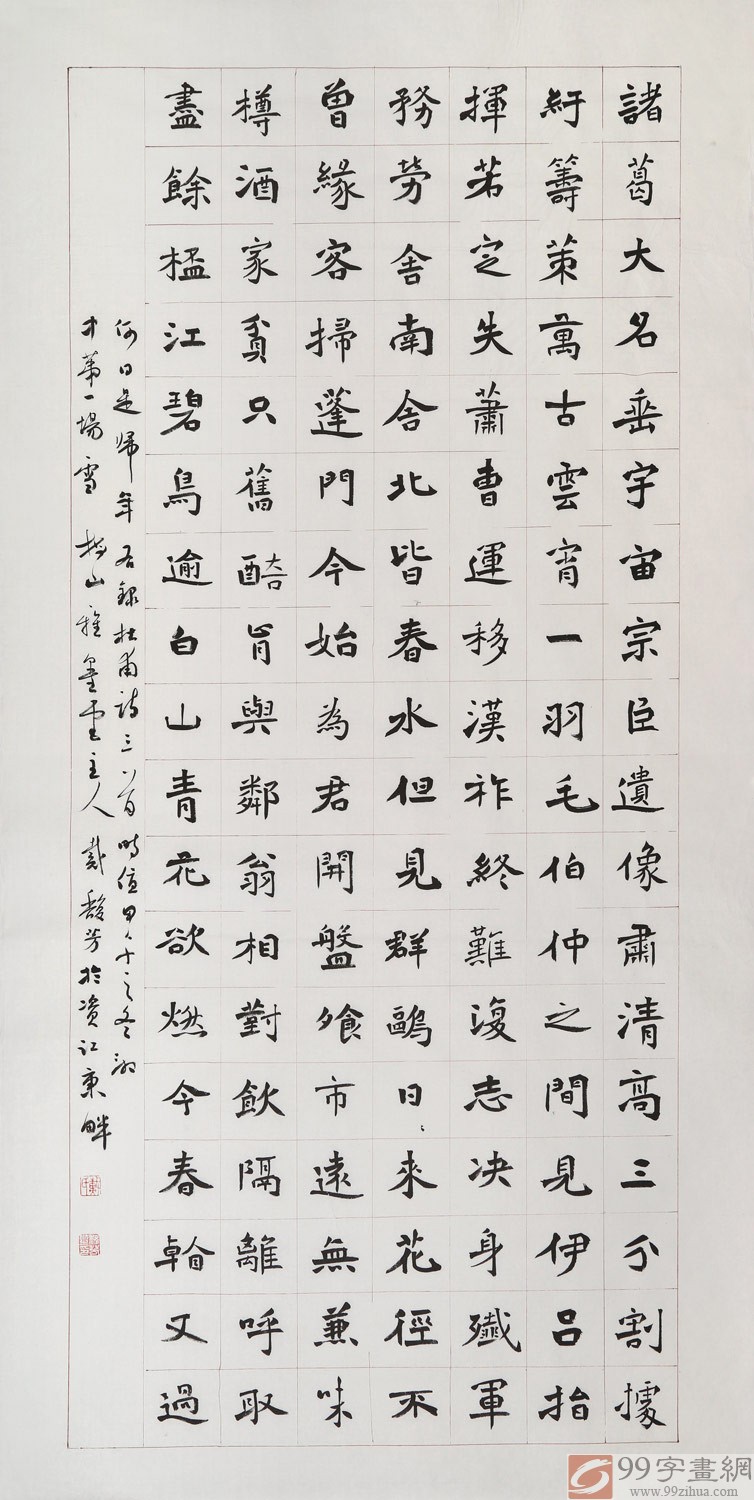 諸葛大名垂宇宙宗臣遺像肅清高三分割據
紆籌策萬古雲霄一羽毛伯仲之間見伊呂指
揮若定失蕭曹運移漢祚終難復志决身殲軍
務勞舍南舍北皆春水但見群鷗日〻來花徑不
曾緣客掃蓬門今始為君開盤飱市遠無兼味
樽酒家貧只舊醅肯與鄰翁相對飲隔離呼取
盡餘杯江碧鳥逾白山青花欲燃今春看又過
何日是歸年 右錄杜甫詩三首 時值甲午之冬初
才第一場雪 梅山雅墨堂主人 戴馥芳於资江東畔
99字畫網
www.99zihua.com